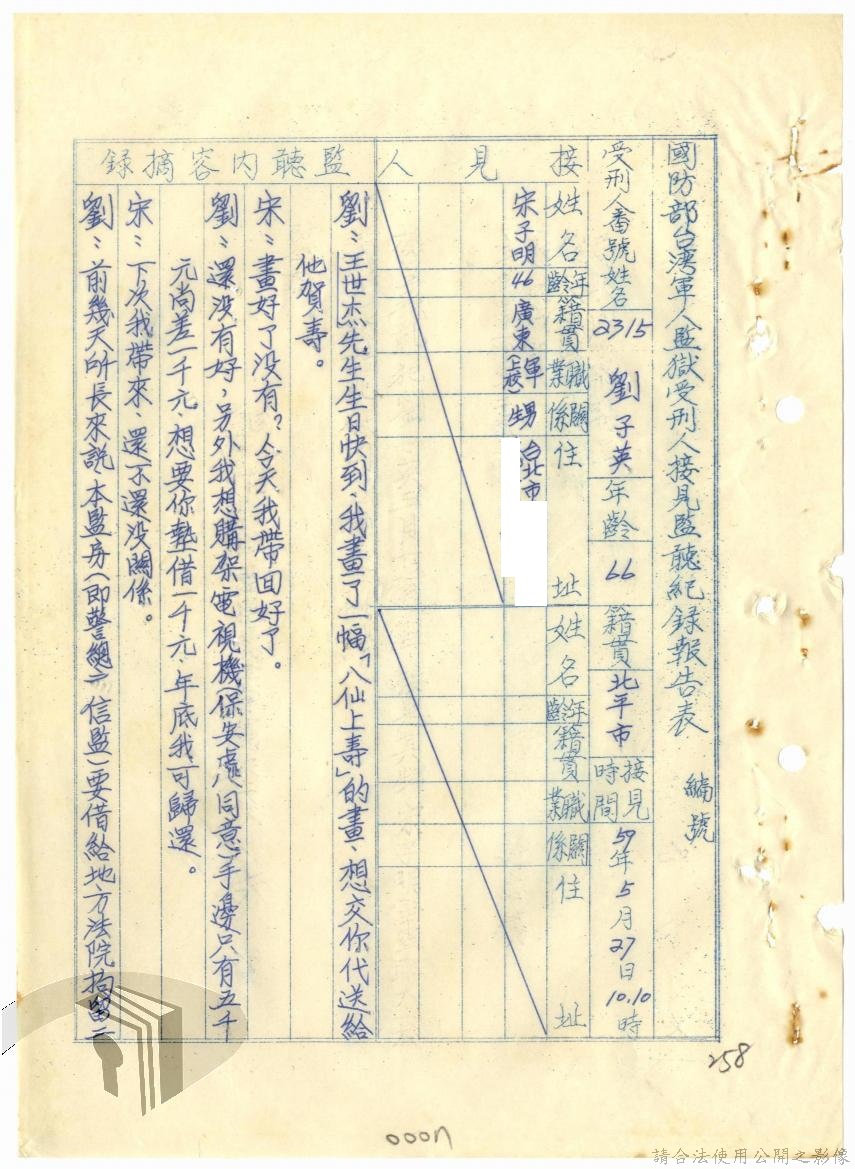 國防部台灣軍人監獄受刑人接見監聽紀錄報告表 編號
受刑人番號姓名 2315 劉子英 年齡 66 籍貫 北平市 接見時間 59年5月27日10.10時
接見人
姓名 年齡 籍貫 職業 關係 住址 姓名 年齡 籍貫 職業 關係 住址
宋子明 46 廣東 軍(上校) 甥 台北市
監聽內容摘錄
劉：王世杰先生生日快到、我畫了一幅「八仙上壽」的畫、想交你代送給
他賀壽。
宋：畫好了没有？今天我帶回好了。
劉：還没有好，另外我想購架電視機(保安處同意)手邊只有五千
元尚差一千元、想要你墊借一千元、年底我可歸還。
宋：下次我帶來、還不還没關係。
劉：前幾天所長來説本監房(即警總 信監)要借給地方法院拘留二
258
請合法使用公開之影像